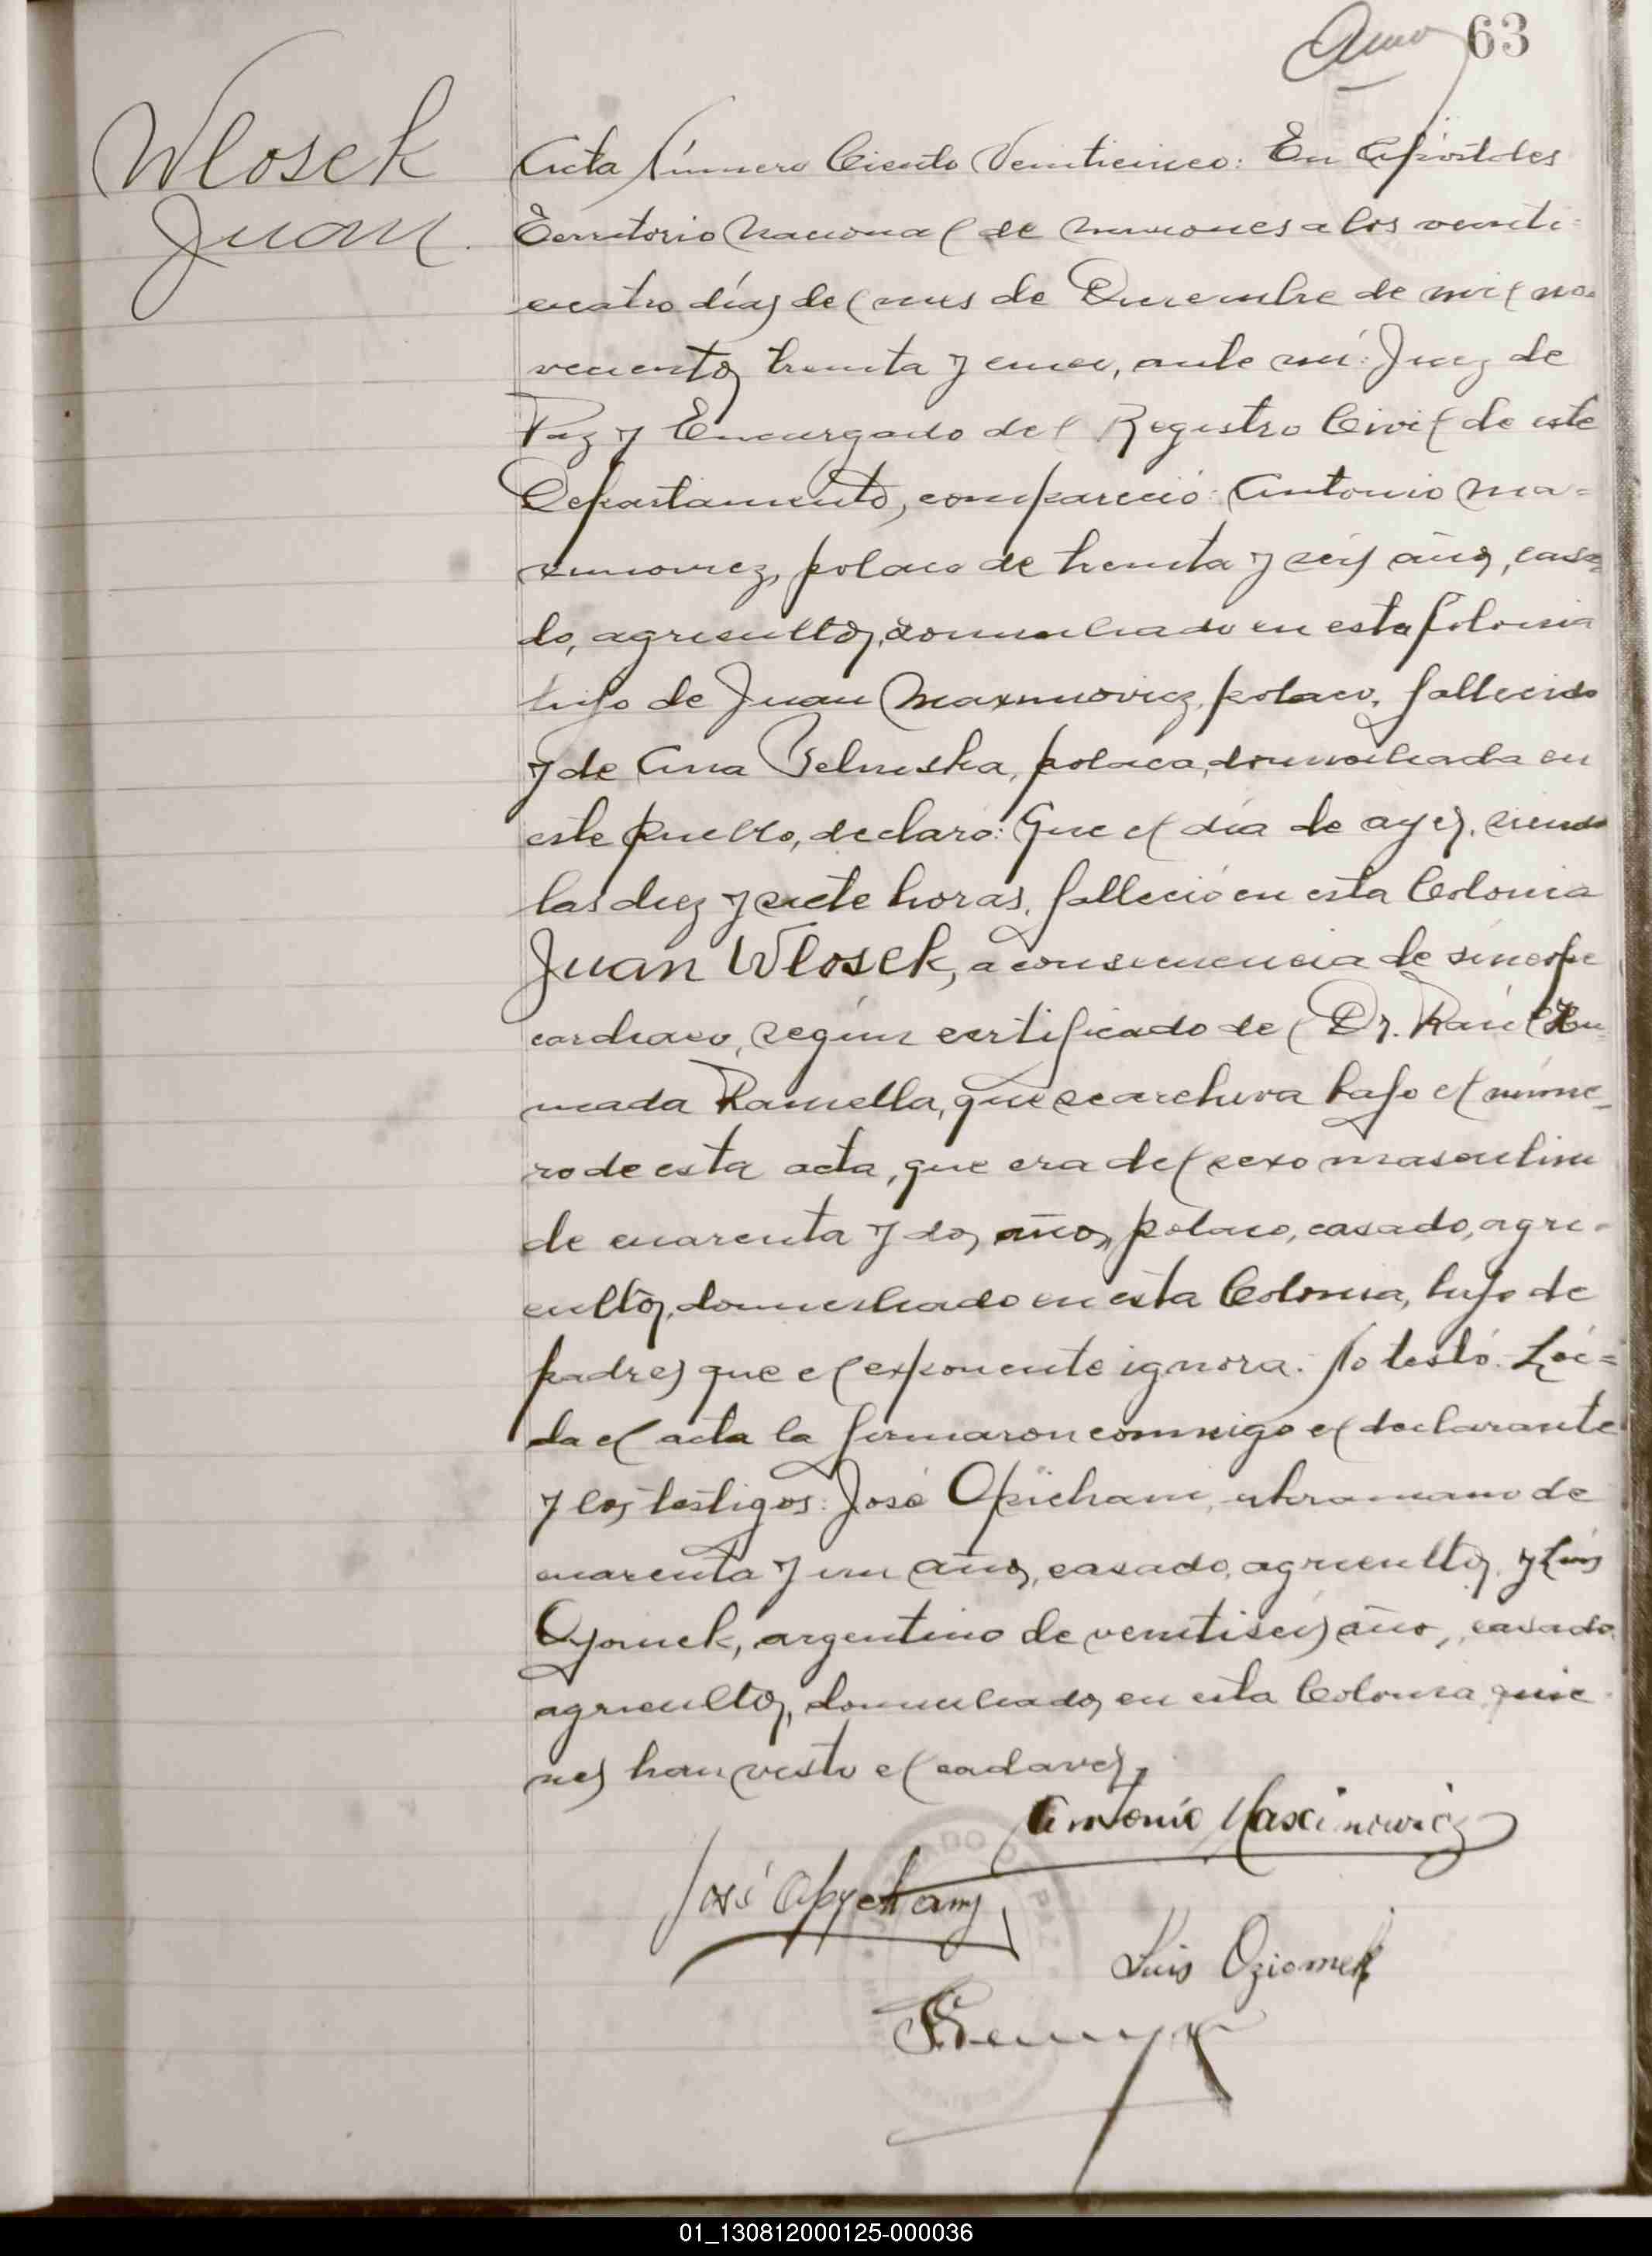 63
Wlosek
Juan.
Acta Número Ciento Veinticinco: En Apóstoles
Territorio Nacional de Misiones a los veinti=
cuatro días del mes de Diciembre de mil no=
vecientos treinta y cinco, ante mí: Juez de
Paz y Encargado del Registro Civil de este
Departamento, compareció: Antonio Ma=
ximovicz, polaco de treinta y seis años, casa=
do, agricultor, domiciliado en esta Colonia
hijo de Juan Maxmovicz, polaco, fallecido
y de Ana polaca, domiciliada en
este pueblo, declaró: Que el día de ayer, siendo
las diez y siete horas, falleció en esta Colonia
Juan Wlosek, a consecuencia de síncope
cardiaco, según certificado del Dr. Raúl
Ramella, que se archiva bajo el núme=
ro de esta acta, que era del sexo masculino
de cuarenta y dos años, polaco, casado, agri=
cultor, domiciliado en esta Colonia, hijo de
padres que el exponente ignora. No testó. Leí=
da el acta la firmaron conmigo el declarante
y los testigos: José Opichani, ukraniano de
cuarenta y un años, casado, agricultor, y Luis
Oziomek, argentino de veintiseis años, casado,
agricultor, domiciliados en esta Colonia quie=
nes han visto el cadaver.
Antonio Mascinowicz
José Opychany
Luis Oziomek
01_130812000125-000036